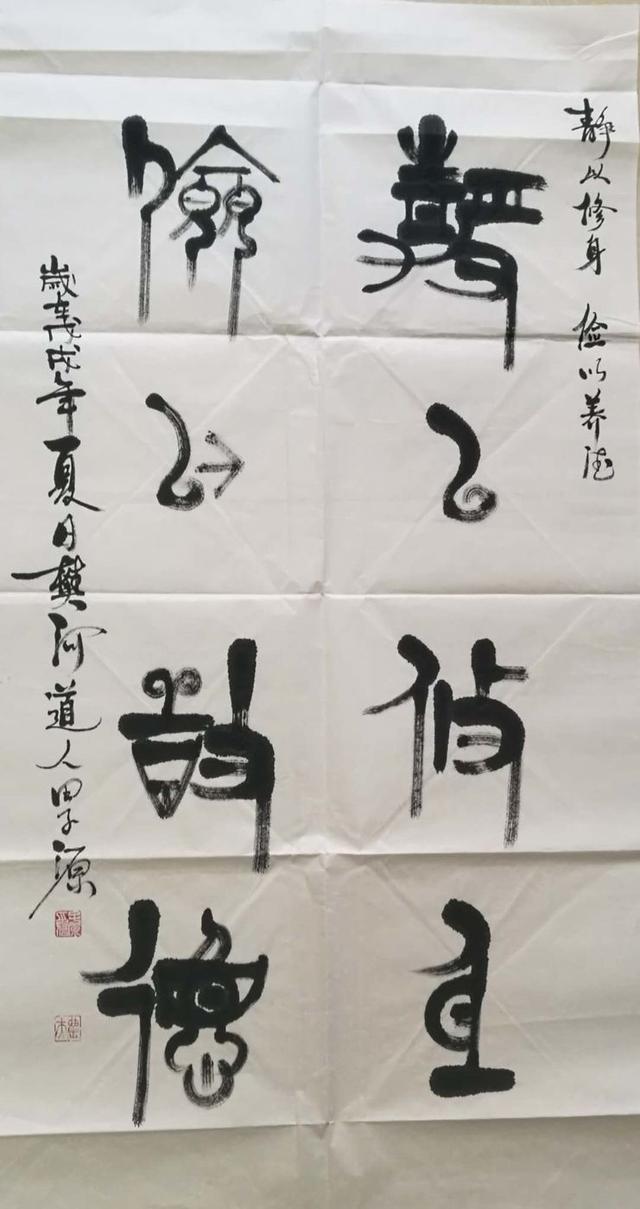 静以修身 俭以养德
静以修身
儉以養德
歲在戊戌年夏日樊河道人田子源